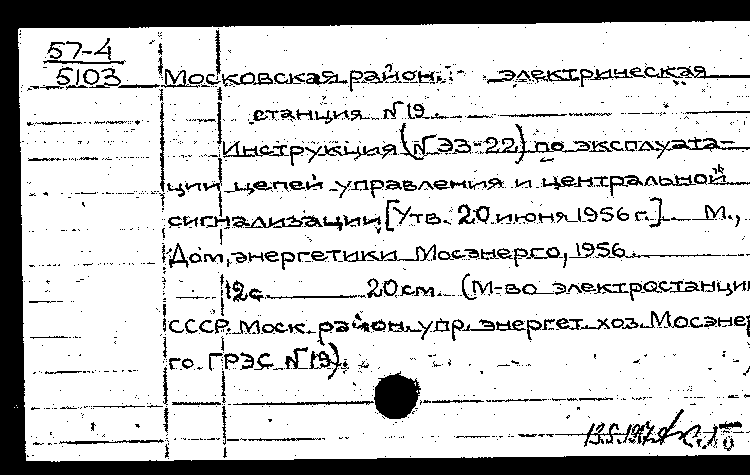 57-4
5103
Московская район. электрическая
станция №19.
Инструкция (№ЭЗ-22) по эксплуата-
ции цепей управления и центральной
сигнализации. [Утв. 20 июня 1956 г.] М.,
Дом энергетики Мосэнерго, 1956.
12 с. 20 см. (М-во электростанци
СССР. Моск. район. упр. энергет. хоз. Мосэнер
го. ГРЭС №19).